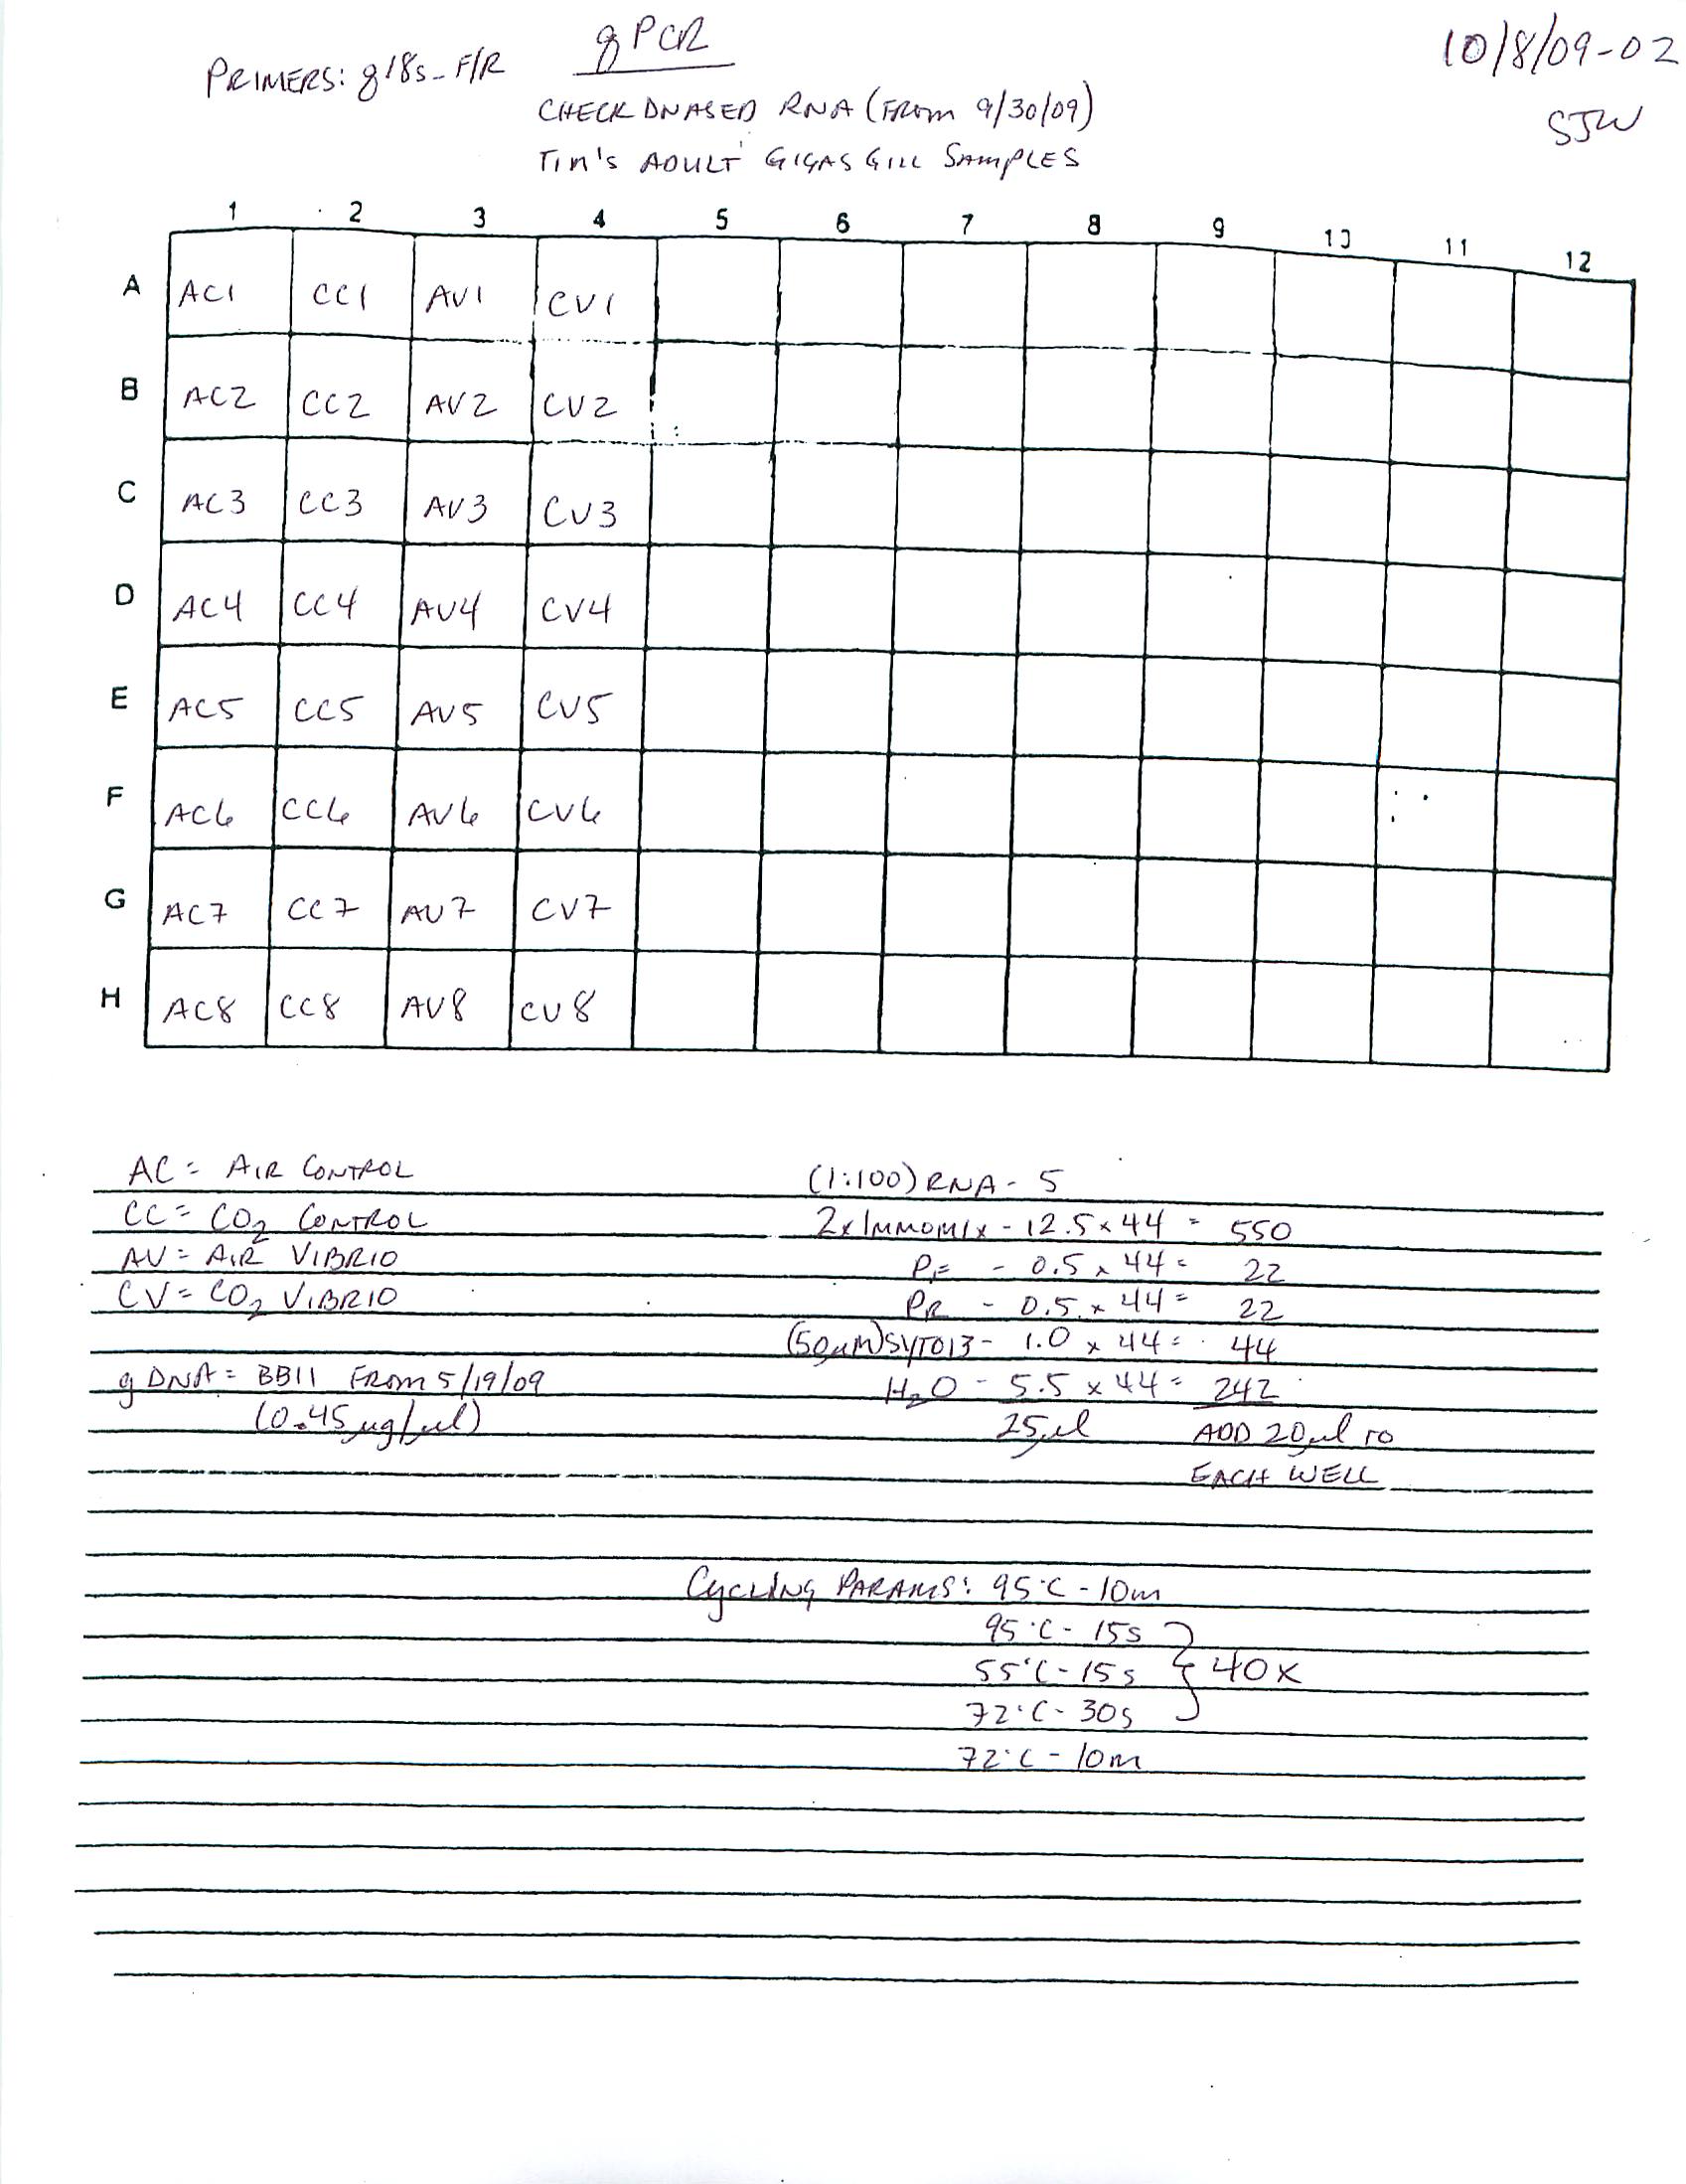 qPCR
10/8/09-02
PRIMERS: g18s_F/R
SJW
CHECK DNASED RNA (FROM 9/30/09)
TIM'S ADULT GIGAS GILL SAMPLES
1 2 3 4 5 6 7 8 9 10 11 12
A AC1 CC1 AV1 CV1
B AC2 CC2 AV2 CV2
C AC3 CC3 AV3 CV3
D AC4 CC4 AV4 CV4
E AC5 CC5 AV5 CV5
F AC6 CC6 AV6 CV6
G AC7 CC7 AV7 CV7
H AC8 CC8 AV8 CV8
AC = AIR CONTROL
CC = CO2 CONTROL
AV = AIR VIBRIO
CV = CO2 VIBRIO
gDNA = BB11 FROM 5/19/09
(0.45µg/µl)
(1:100) RNA - 5
2x IMMOMIX - 12.5 x 44 = 550
PF - 0.5 x 44 = 22
PR - 0.5 x 44 = 22
(50µM) SYTO13 - 1.0 x 44 = 44
H2O - 5.5 x 44 = 242
25µl ADD 20µl TO
EACH WELL
CYCLING PARAMS: 95°C - 10m
95°C - 15s
55°C - 15s } 40x
72°C - 30s
72°C - 10m